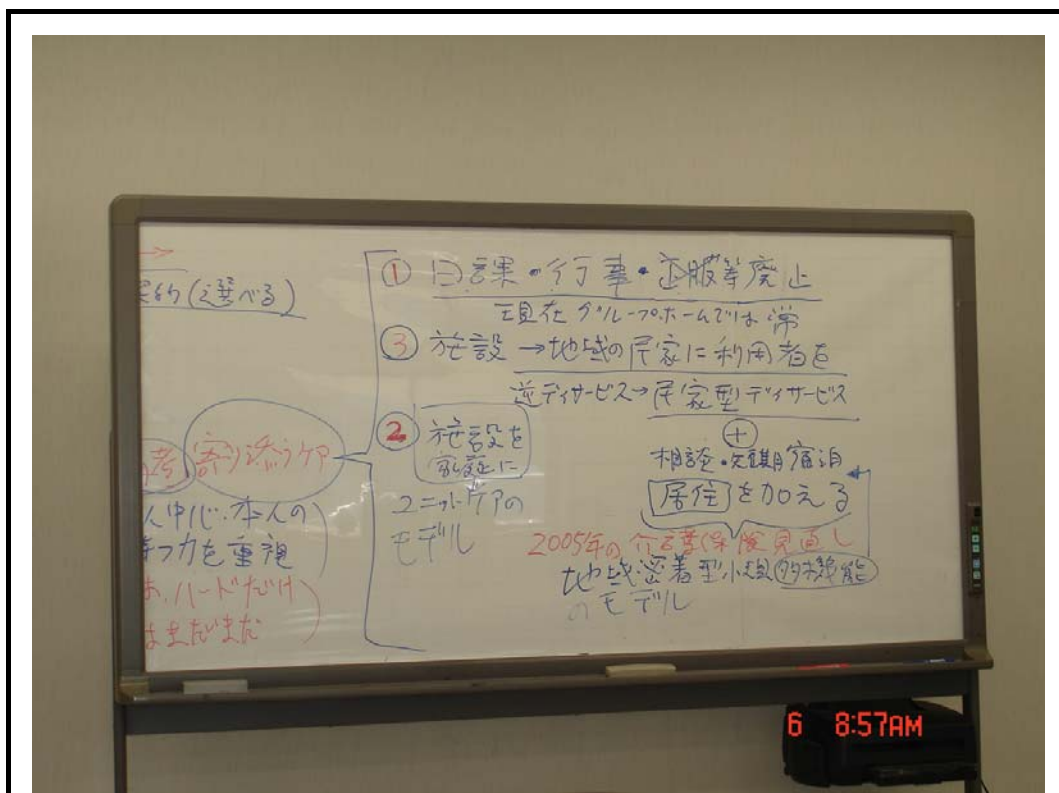 契約(選べる)
考 寄り添うケア
人中心・本人の
持つ力を重視
ハードだけ
はまだまだ
① 日課・行事・制服等廃止
現在グループホームでは常
③ 施設→地域の民家に利用者を
逆デイサービス→民家型デイサービス
+
相談・短期宿泊
居住を加える
② 施設を
家庭に
ユニットケアの
モデル
2005年の介護保険見直し
地域密着型小規多機能
のモデル
6 8:57AM